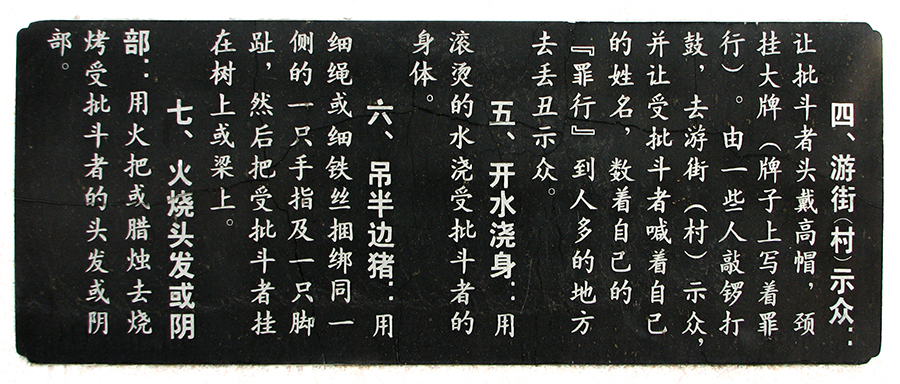 四、游街（村）示众：
让批斗者头戴高帽，颈
挂大牌（牌子上写着罪
行）。由一些人敲锣打
鼓，去游街（村）示众，
并让受批斗者喊着自己
的姓名，数着自己的
『罪行』到人多的地方
去丢丑示众。
五、开水浇身：用
滚烫的水浇受批斗者的
身体。
六、吊半边猪：用
细绳或细铁丝捆绑同一
侧的一只手指及一只脚
趾，然后把受批斗者挂
在树上或梁上。
七、火烧头发或阴
部：用火把或腊烛去烧
烤受批斗者的头发或阴
部。